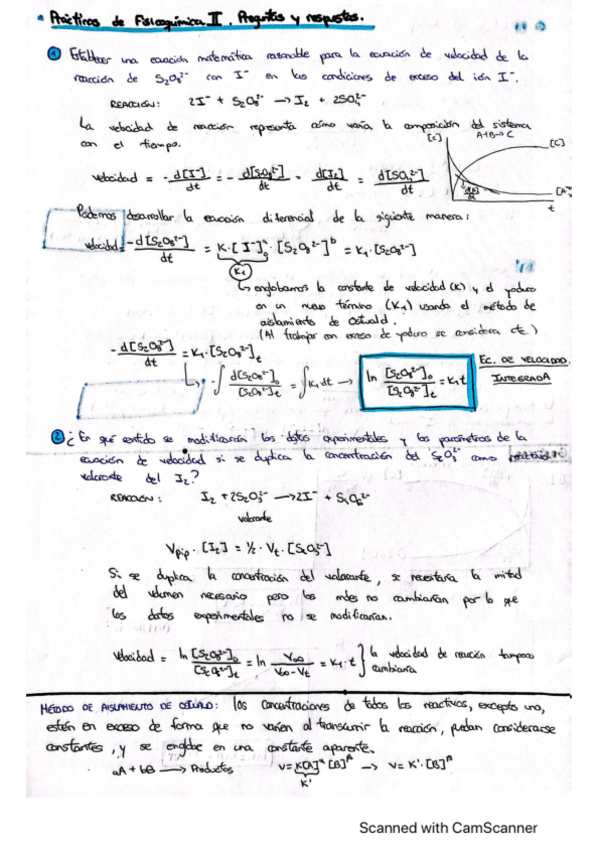 Prácticas de Fisicoquímica II. Preguntas y respuestas.
① Establecer una ecuación matemática razonable para la ecuación de velocidad de la
reacción de S₂O₈²⁻ con I⁻ en las condiciones de exceso del ión I⁻.
REACCIÓN: 2I⁻ + S₂O₈²⁻ → I₂ + 2SO₄²⁻
La velocidad de reacción representa cómo varía la composición del sistema
con el tiempo.
[C] A+B→C
[C]
[A]
t
velocidad = -d[I⁻]/dt = -d[S₂O₈²⁻]/dt - d[I₂]/dt = d[SO₄²⁻]/dt
Podemos desarrollar la ecuación diferencial de la siguiente manera:
velocidad = -d[S₂O₈²⁻]/dt = K·[I⁻]ᵃ₀·[S₂O₈²⁻]ᵇ = K₁·[S₂O₈²⁻]
K₁
↳ englobamos la constante de velocidad (K) y el yoduro
en un nuevo término (K₁) usando el método de
aislamiento de Ostwald.
(Al trabajar en exceso de yoduro se considera cte.)
-d[S₂O₈²⁻]/dt = K₁·[S₂O₈²⁻]t
↳ -∫ d[S₂O₈²⁻]₀/[S₂O₈²⁻]t = ∫K₁dt → ln [S₂O₈²⁻]₀/[S₂O₈²⁻]t = K₁t
EC. DE VELOCIDAD
INTEGRADA
② ¿En qué sentido se modificarán los datos experimentales y los parámetros de la
ecuación de velocidad si se duplica la concentración del S₂O₃²⁻ como
valorante del I₂?
REACCIÓN: I₂ + 2S₂O₃²⁻ → 2I⁻ + S₄O₆²⁻
valorante
Vpip·[I₂] = ½·Vt·[S₂O₃²⁻]
Si se duplica la concentración del valorante, se necesitaría la mitad
del volumen necesario pero los moles no cambiarían por lo que
los datos experimentales no se modificarían.
Velocidad = ln [S₂O₈²⁻]₀/[S₂O₈²⁻]t = ln V∞/V∞-Vt = K₁·t } la velocidad de reacción tampoco
cambiaría
MÉTODO DE AISLAMIENTO DE OSTWALD: las concentraciones de todos los reactivos, excepto uno,
estén en exceso de forma que no varíen al transcurrir la reacción, puedan considerarse
constantes, y se englobe en una constante aparente.
aA + bB → Productos v = K[A]ᵅ[B]ᵝ → v = K'·[B]ᵝ
K'
Scanned with CamScanner